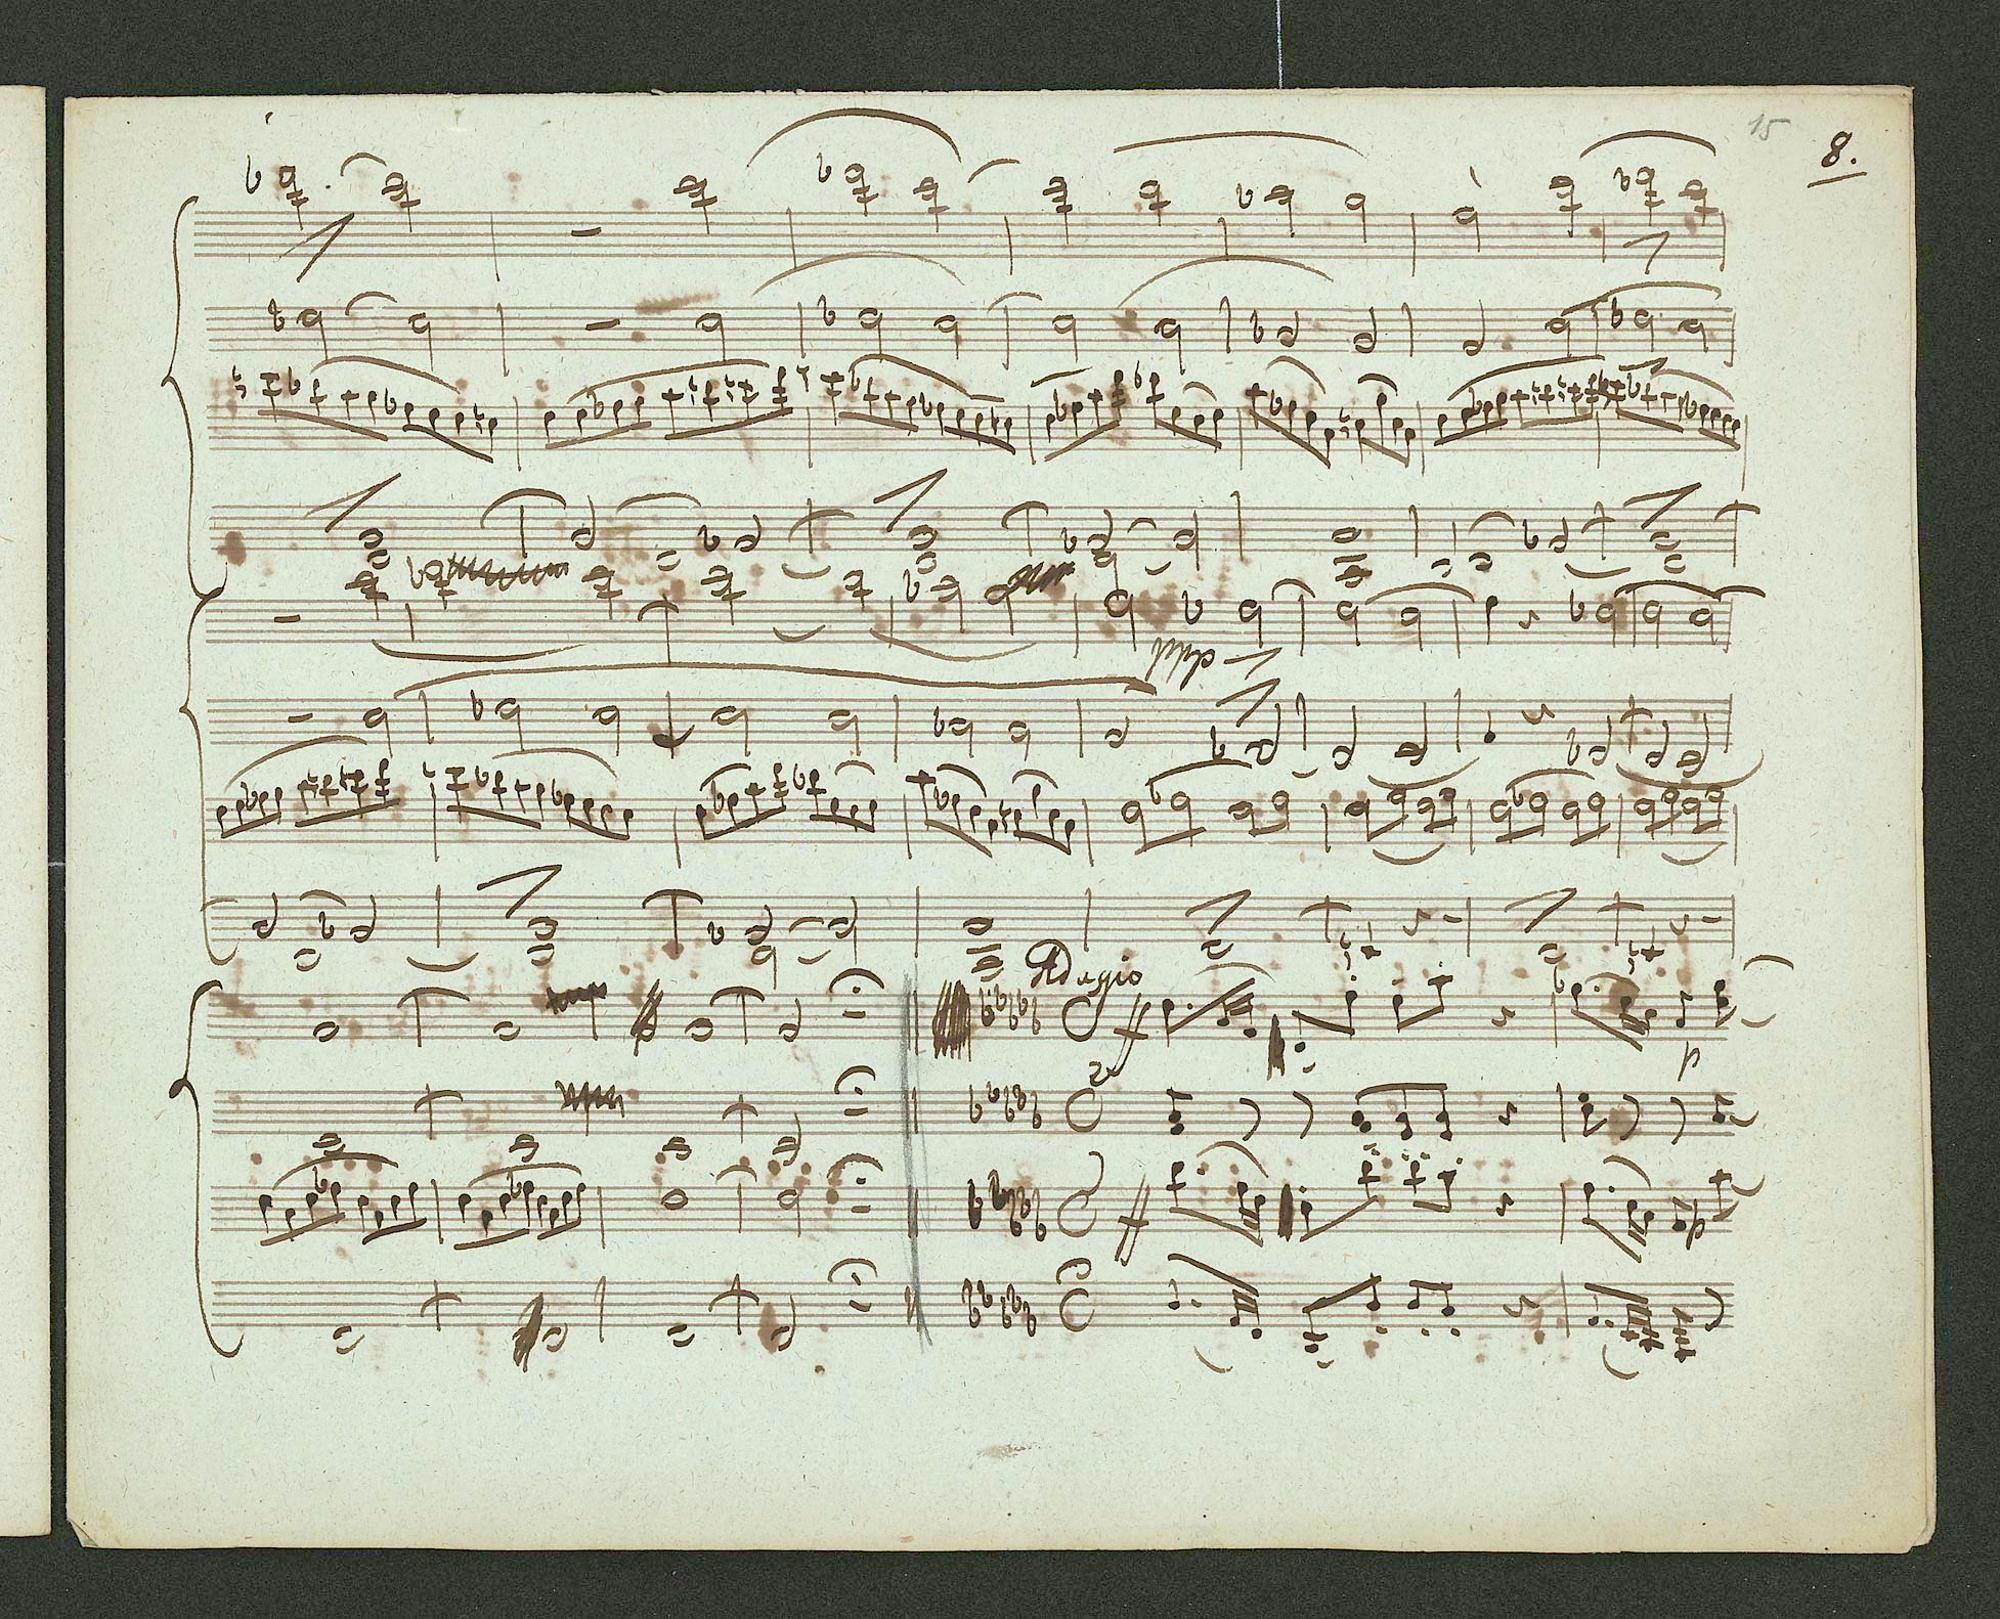 15
8.
Adagio
ff
p
ff
p